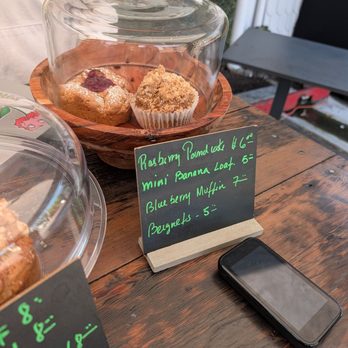 Rasberry Poundcake $6.00
mini Banana Loaf 6=
Blueberry Muffin 7=
Beignets - 5=
8=
8=
8=